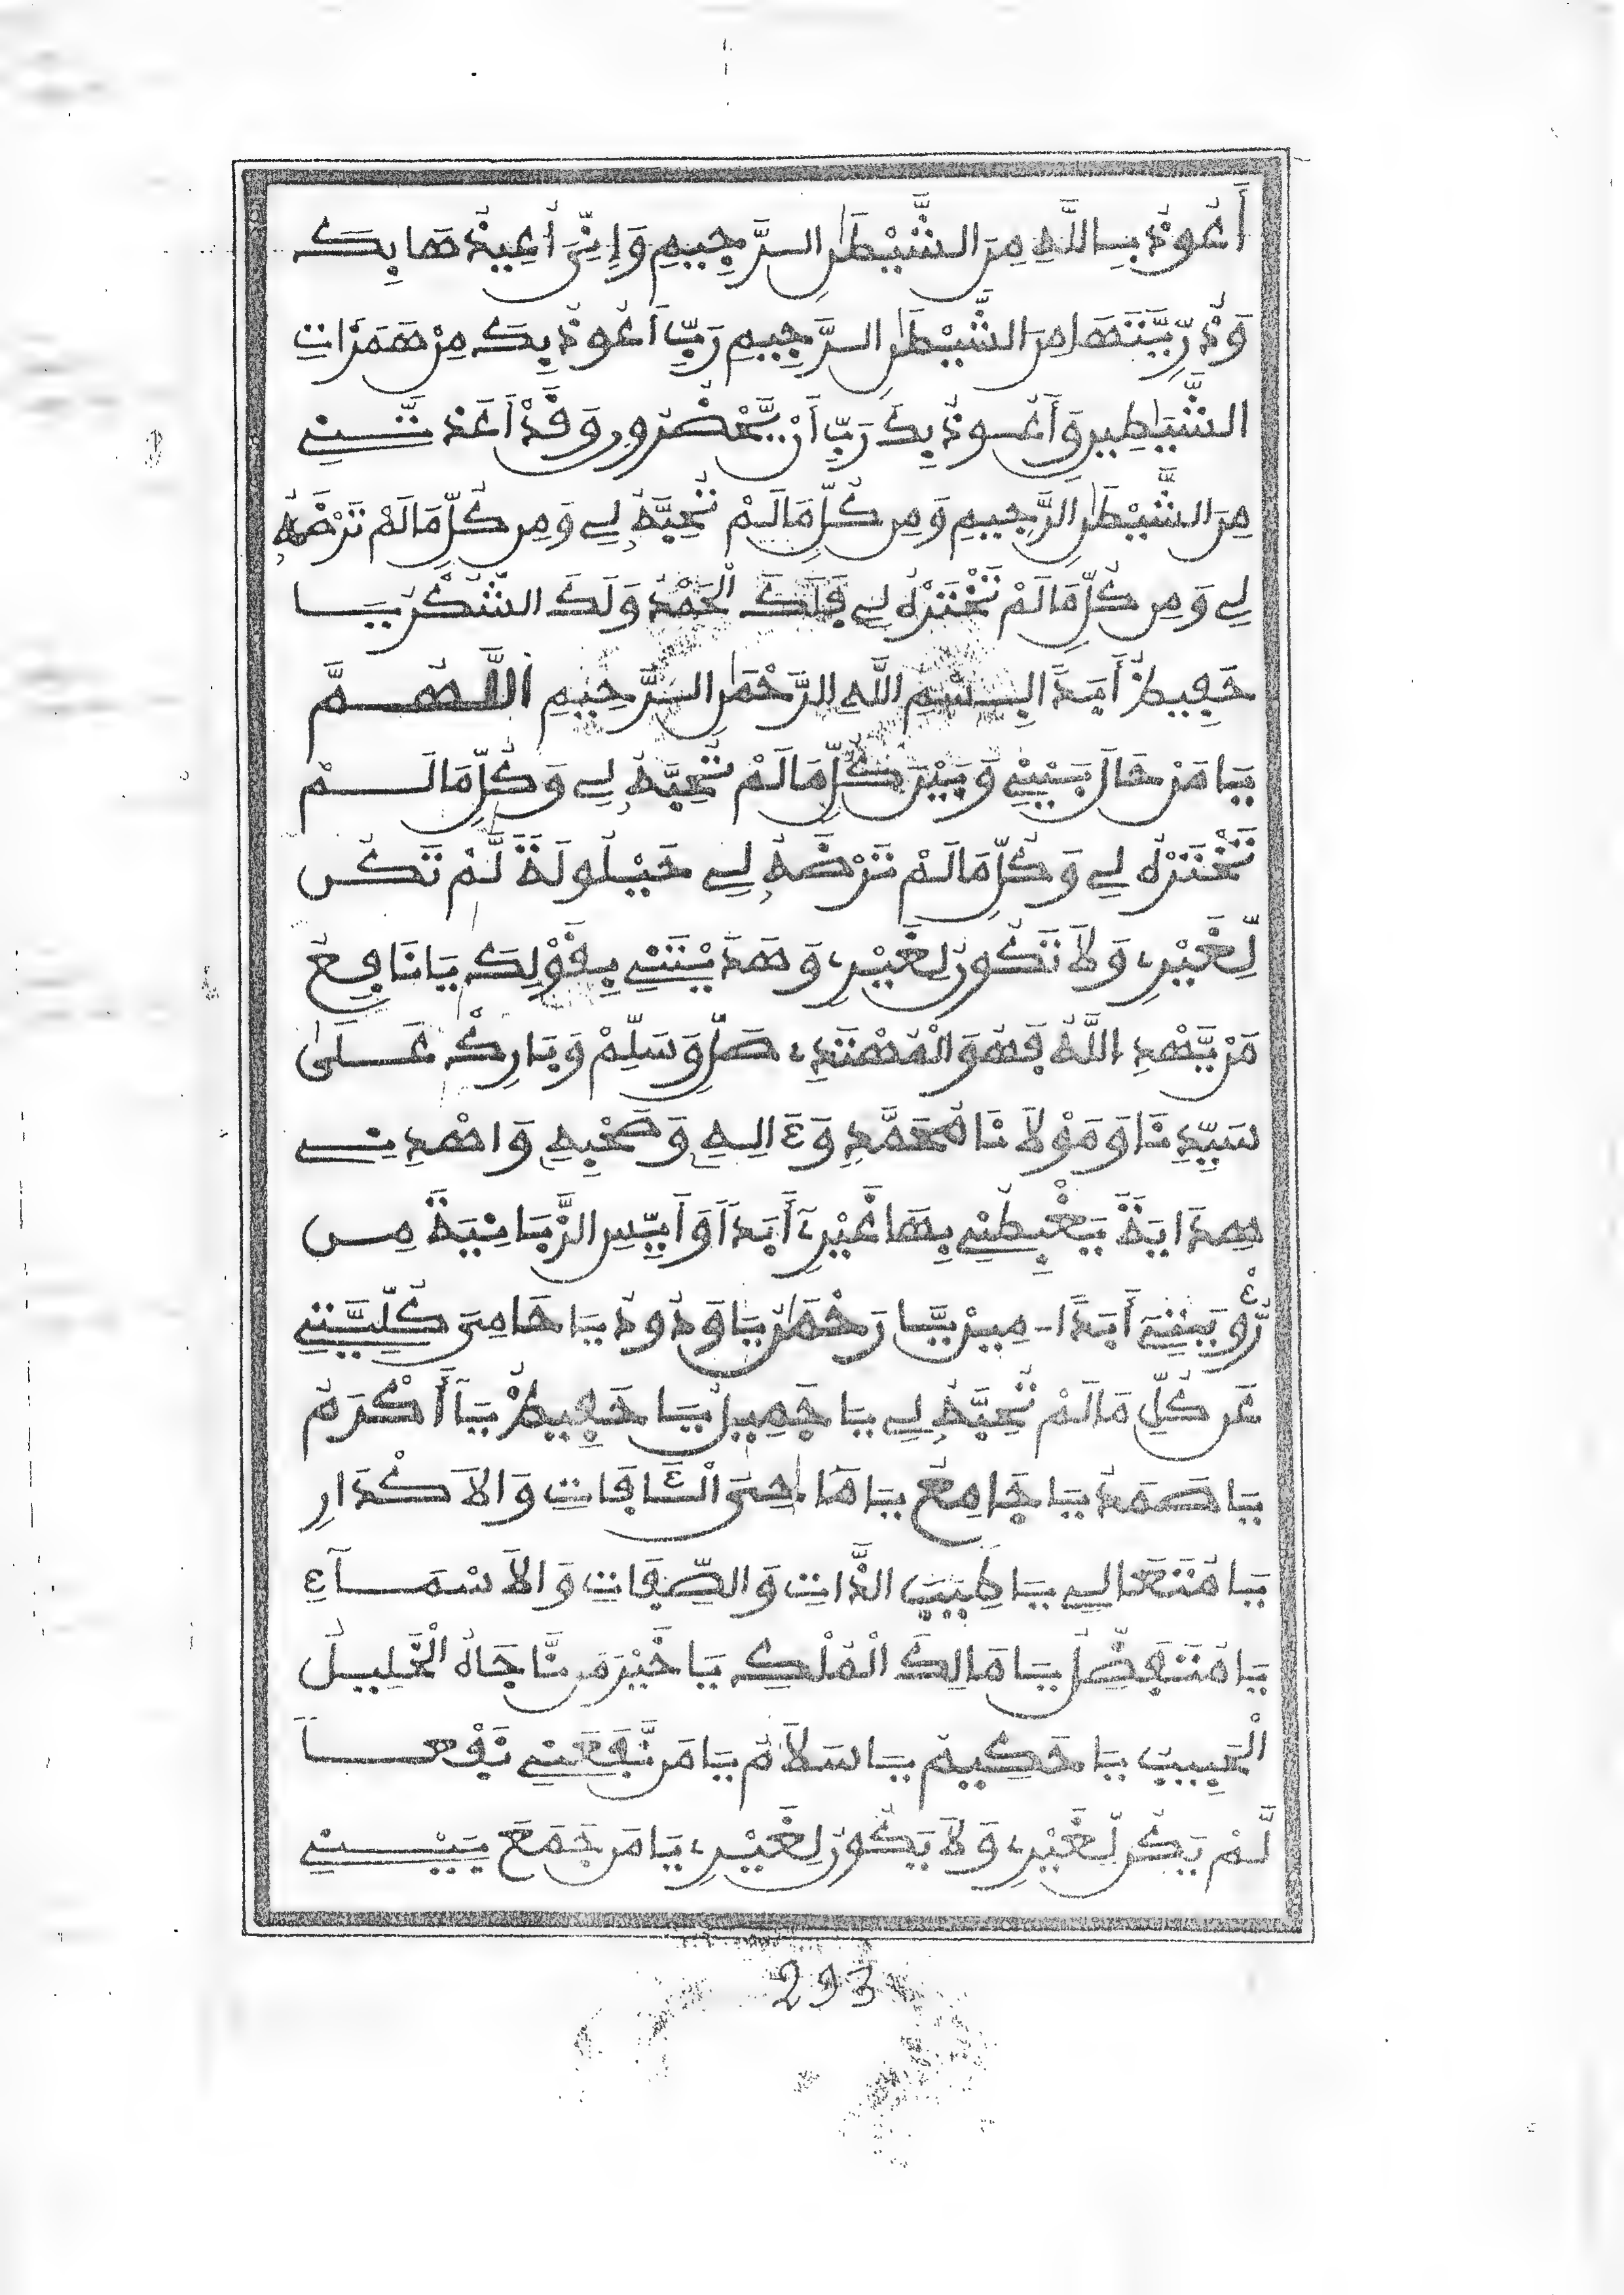 أَعُوذُ بِاللَّهِ مِنَ الشَّيْطَٰنِ الرَّجِيمِ وَإِنِّىَ أُعِيذُهَا بِكَ
وَذُرِّيَّتَهَا مِنَ الشَّيْطَٰنِ الرَّجِيمِ رَبِّ أَعُوذُ بِكَ مِنْ هَمَزَاتِ
الشَّيَٰطِينِ وَأَعُوذُ بِكَ رَبِّ أَنْ يَّحْضُرُونِ وَقَدْ أَعَذْتَّنِے
مِنَ الشَّيْطَٰنِ الرَّجِيمِ وَمِن كُلِّ مَا لَمْ تُحِبَّهُ لِے وَمِن كُلِّ مَا لَمْ تَرْضَهُ
لِے وَمِن كُلِّ مَا لَمْ تَخْتَرْهُ لِے فَلَكَ الْحَمْدُ وَلَكَ الشُّكْرُ يَا
حَفِيظُ أَبَداً اِلبِسْمِ اللَّهِ الرَّحْمَٰنِ الرَّحِيمِ اللَّهُمَّ
يَا مَنْ حَالَ بَيْنِے وَبَيْنَ كُلِّ مَا لَمْ تُحِبَّهُ لِے وَكُلِّ مَا لَمْ
تَخْتَرْهُ لِے وَكُلِّ مَا لَمْ تَرْضَهُ لِے حَيْلُولَةً لَّمْ تَكُن
لِّغَيْرِے وَلاَ تَكُونُ لِغَيْرِے وَهَدَيْتَنِے بِقَوْلِكَ يَا نَافِعُ
مَنْ يَّهْدِ اللَّهُ فَهُوَ الْمُهْتَدِے صَلِّ وَسَلِّمْ وَبَارِكْ عَلَىٰ
سَيِّدِنَا وَمَوْلاَنَا مُحَمَّدٍ وَءَالِهِ وَصَحْبِهِ وَاهْدِنِے
هِدَايَةً يَغْبِطُنِے بِهَا غَيْرِے أَبَداً وَأَيِّسِ الزَّبَانِيَةَ مِن
رُّؤْيَتِے أَبَدًا ـ مِين يَا رَحْمَٰنُ يَا وَدُودُ يَا حَامِىَ كُلِّيَّتِے
عَن كُلِّ مَا لَمْ تُحِبَّهُ لِے يَا جَمِيلُ يَا حَفِيظُ يَا أَكْرَمُ
يَا صَمَدُ يَا جَامِعُ يَا مَاحِىَ الْئَافَاتِ وَالاَكْدَارِ
يَا مُتَعَالِے يَا طَيِّبَ الذَّاتِ وَالصِّفَاتِ وَالاَسْمَآءِ
يَا مُتَفَضِّلُ يَا مَالِكَ الْمُلْكِ يَا خَيْرَ مَن نَّاجَاهُ الْخَلِيلُ
الْحَبِيبُ يَا حَكِيمُ يَا سَلاَمُ يَا مَن نَّفَعَنِے نَفْعاً
لَّمْ يَكُن لِّغَيْرِے وَلاَ يَكُونُ لِغَيْرِے يَا مَن جَمَعَ بَيْنِے
293